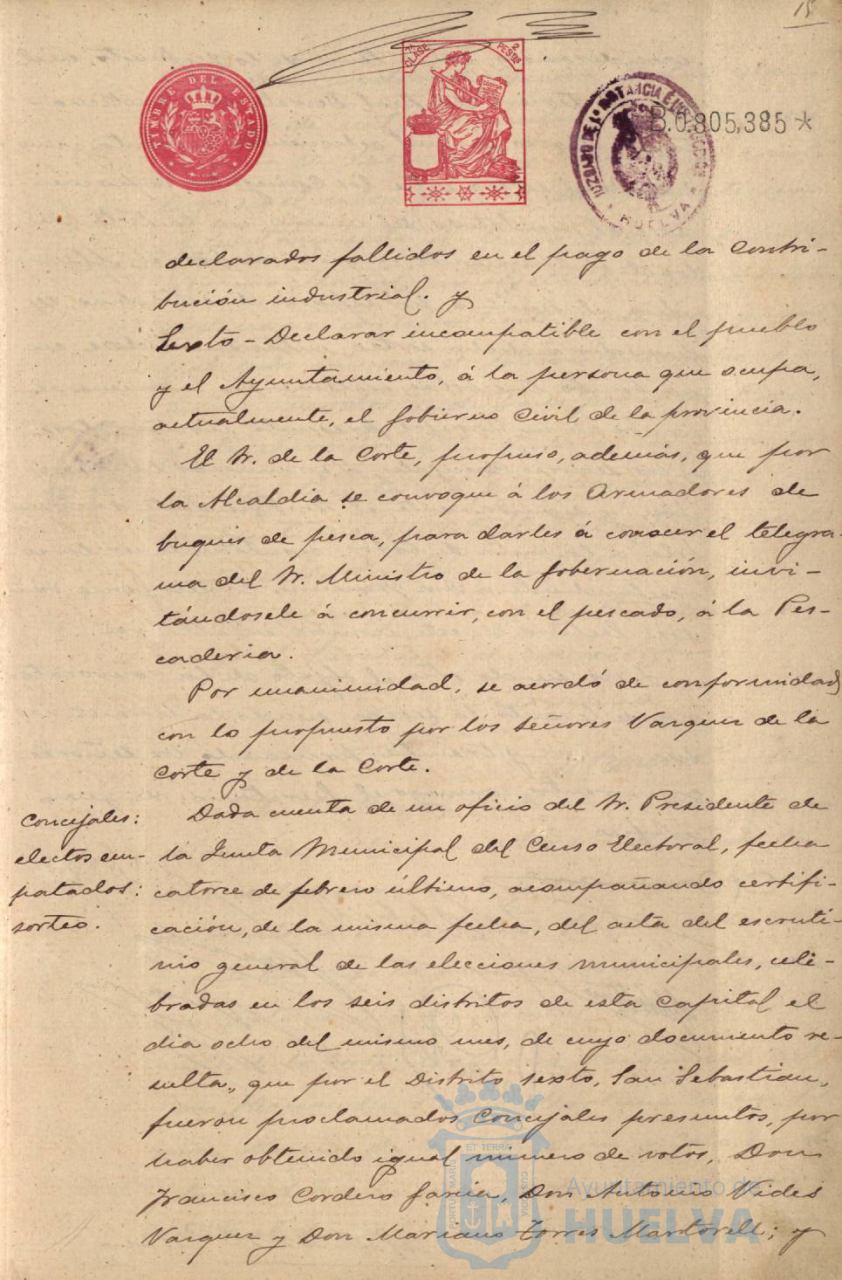 15
TIMBRE DEL ESTADO
CLASE
2 PESETAS
B.0.805,385 *
JUZGADO DE 1ª INSTANCIA
HUELVA
declarados fallidos en el pago de la Contri-
bución industrial. y
Sexto - Declarar incompatible con el pueblo
y el Ayuntamiento, á la persona que ocupa,
actualmente, el Gobierno Civil de la provincia.
El Sr. de la Corte, propuso, además, que por
la Alcaldia se convoque á los Armadores de
buques de pesca, para darles á conocer el telegra-
ma del Sr. Ministro de la Gobernación, invi-
tándosele á concurrir, con el pescado, á la Pes-
caderia.
Por unanimidad, se acordó de conformidad
con lo propuesto por los señores Vazquez de la
Corte y de la Corte.
Concejales:
electos em-
patados:
sorteo.
Dada cuenta de un oficio del Sr. Presidente de
la Junta Municipal del Censo Electoral, fecha
catorce de febrero último, acompañando certifi-
cación, de la misma fecha, del acta del escruti-
nio general de las elecciones municipales, cele-
bradas en los seis distritos de esta Capital el
dia ocho del mismo mes, de cuyo documento re-
sulta, que por el Distrito sexto, San Sebastian,
fueron proclamados Concejales presuntos, por
haber obtenido igual número de votos, Don
Francisco Cordero Garcia, Don Antonio Vides
Vazquez y Don Mariano Torres Martorell; y
Ayuntamiento de
HUELVA